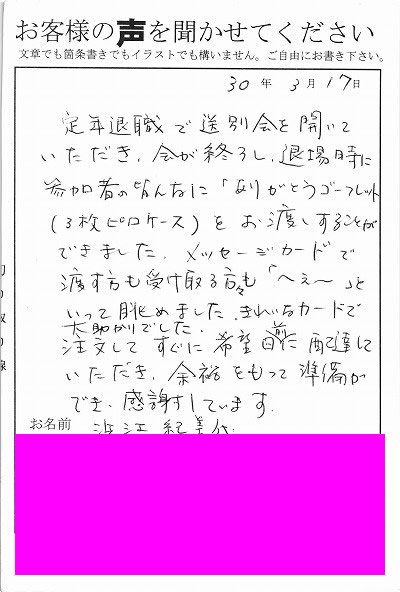 お客様の声を聞かせてください
文章でも箇条書きでもイラストでも構いません。ご自由にお書き下さい。
30年3月17日
定年退職で送別会を開いて
いただき、会が終了し、退場時に
参加者の皆んなに「ありがとうゴーフレット
(3枚ピロケース)をお渡しすることが
できました。メッセージカードで
渡す方も受け取る方々も「へぇ〜」と
いって眺めました。きれいなカードで
大助かりでした。
注文してすぐに希望日前に配達して
いただき、余裕をもって準備が
でき、感謝しています。
お名前
切り取り線